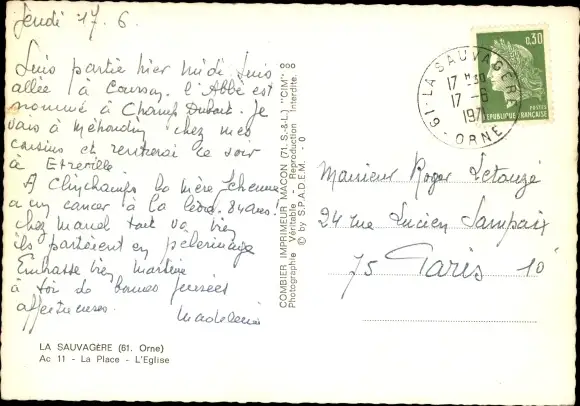 Jeudi 17.6.
Suis partie hier midi suis
allée à Coursay. l'Abbé est
nommé à Champ Dubost. Je
vais à Méhoudin chez mes
cousins et rentrerai ce soir
à Etreville.
A Clinchamps la mère
a un cancer à la 84 ans!
chez Marcel tout va bien
ils partaient en pélerinage
Embrasse bien Martine
à toi de bonnes pensées
affectueuses. Madeleine
LA SAUVAGÈRE (61. Orne)
Ac 11 - La Place - L'Eglise
COMBIER IMPRIMEUR MACON (71. S.-&-L.) "CIM"
Photographie Véritable - Reproduction Interdite.
© by S.P.A.D.E.M. - 0
61 - LA SAUVAGÈRE
17 H 30
17 - 6
1971
ORNE
0,30
POSTES
REPUBLIQUE FRANÇAISE
Monsieur Roger Letouzé
24 rue Lucien Sampaix
75 Paris 10